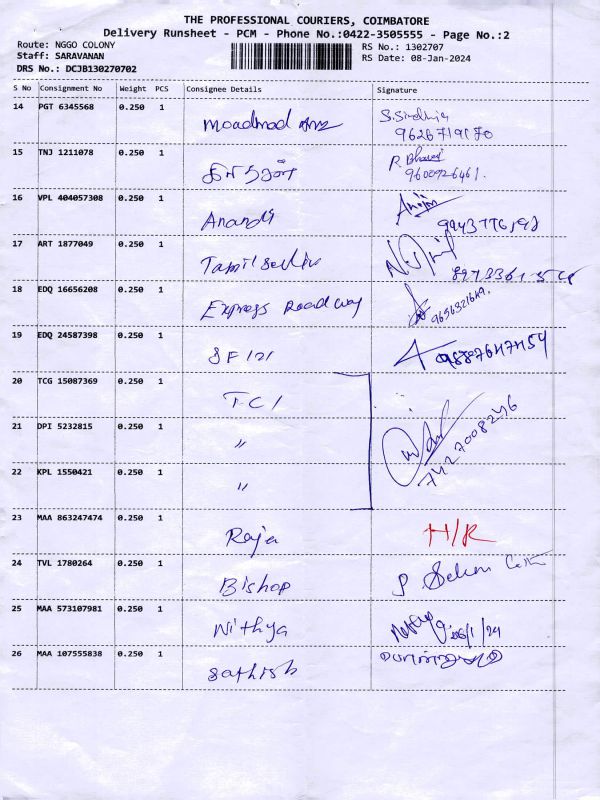 THE PROFESSIONAL COURIERS, COIMBATORE
Delivery Runsheet - PCM - Phone No.:0422-3505555 - Page No.:2
Route: NGGO COLONY RS No.: 1302707
Staff: SARAVANAN RS Date: 08-Jan-2024
DRS No.: DCJB130270702
S No Consignment No Weight PCS Consignee Details Signature
14 PGT 6345568 0.250 1
9626719170
15 TNJ 1211078 0.250 1
R. Bharathi
9600926461.
16 VPL 404057308 0.250 1
Anandh
17 ART 1877049 0.250 1
Tamil selvi
18 EDQ 16656208 0.250 1
Express Roadway
19 EDQ 24587398 0.250 1
SF 121
20 TCG 15087369 0.250 1
TCI
21 DPI 5232815 0.250 1
〃
7427008246
22 KPL 1550421 0.250 1
〃
23 MAA 863247474 0.250 1
Raja H/R
24 TVL 1780264 0.250 1
Bishop
25 MAA 573107981 0.250 1
Nithya
26 MAA 107555838 0.250 1
Sathish